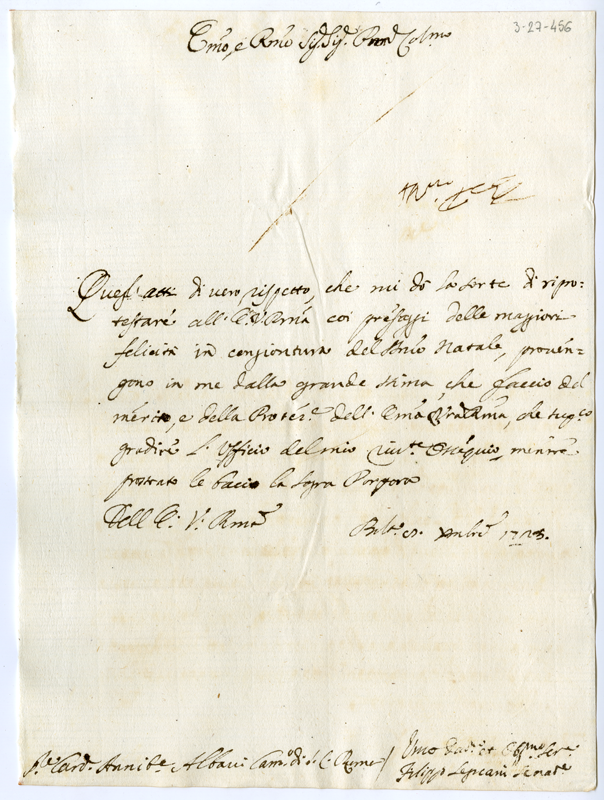 3-27-456
Emo, e Rmo Sig. Sig. Pron Colmo
Quest' atti di vero rispetto, che mi dà la sorte di ripro-
testare all' E. V. Rma coi presaggi delle maggiori
felicità in congiontura del Smo Natale, proven-
gono in me dalla grande stima, che faccio del
merito, e della Protez.e dell' Ema Vra Rma, che
gradirà l' Officio del mio Ossequio, mentre
prostrato le bacio la Sagra Porpora
Dell' E. V. Rma
Xmbre 1723.
Sr. Card. Annibe Albani Cam.o di S. C. Roma
Umo Servre
Filippo Senatre